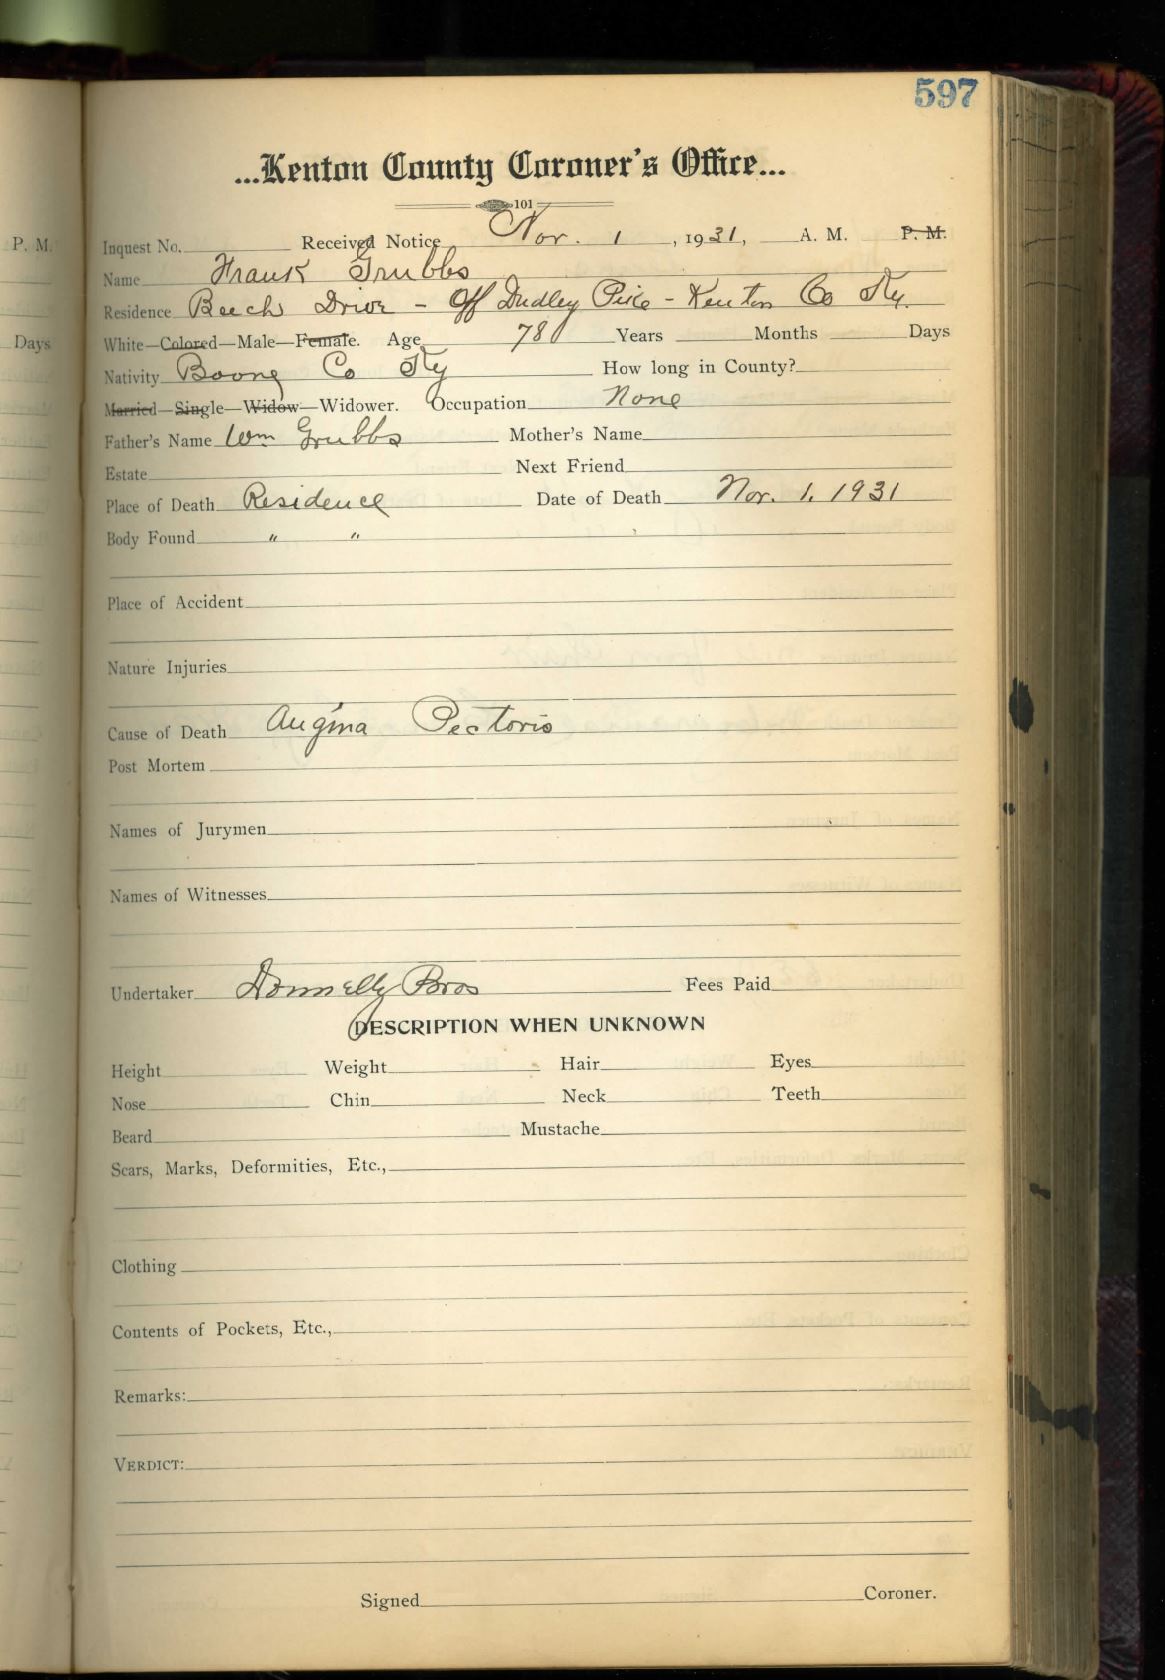 597
...Kenton County Coroner's Office...
101
P. M.
Inquest No. Received Notice Nov. 1, 1931, A. M. P. M.
Name Frank Grubbs
Residence Beech Drive - Off Dudley Pike - Kenton Co Ky.
Days
White—Colored—Male—Female. Age 78 Years Months Days
Nativity Boone Co Ky How long in County?
Married—Single—Widow—Widower. Occupation None
Father's Name Wm Grubbs Mother's Name
Estate Next Friend
Place of Death Residence Date of Death Nov. 1. 1931
Body Found " "
Place of Accident
Nature Injuries
Cause of Death Angina Pectoris
Post Mortem
Names of Jurymen
Names of Witnesses
Undertaker Donnelly Bros Fees Paid
DESCRIPTION WHEN UNKNOWN
Height Weight Hair Eyes
Nose Chin Neck Teeth
Beard Mustache
Scars, Marks, Deformities, Etc.,
Clothing
Contents of Pockets, Etc.,
Remarks:
VERDICT:
Signed Coroner.